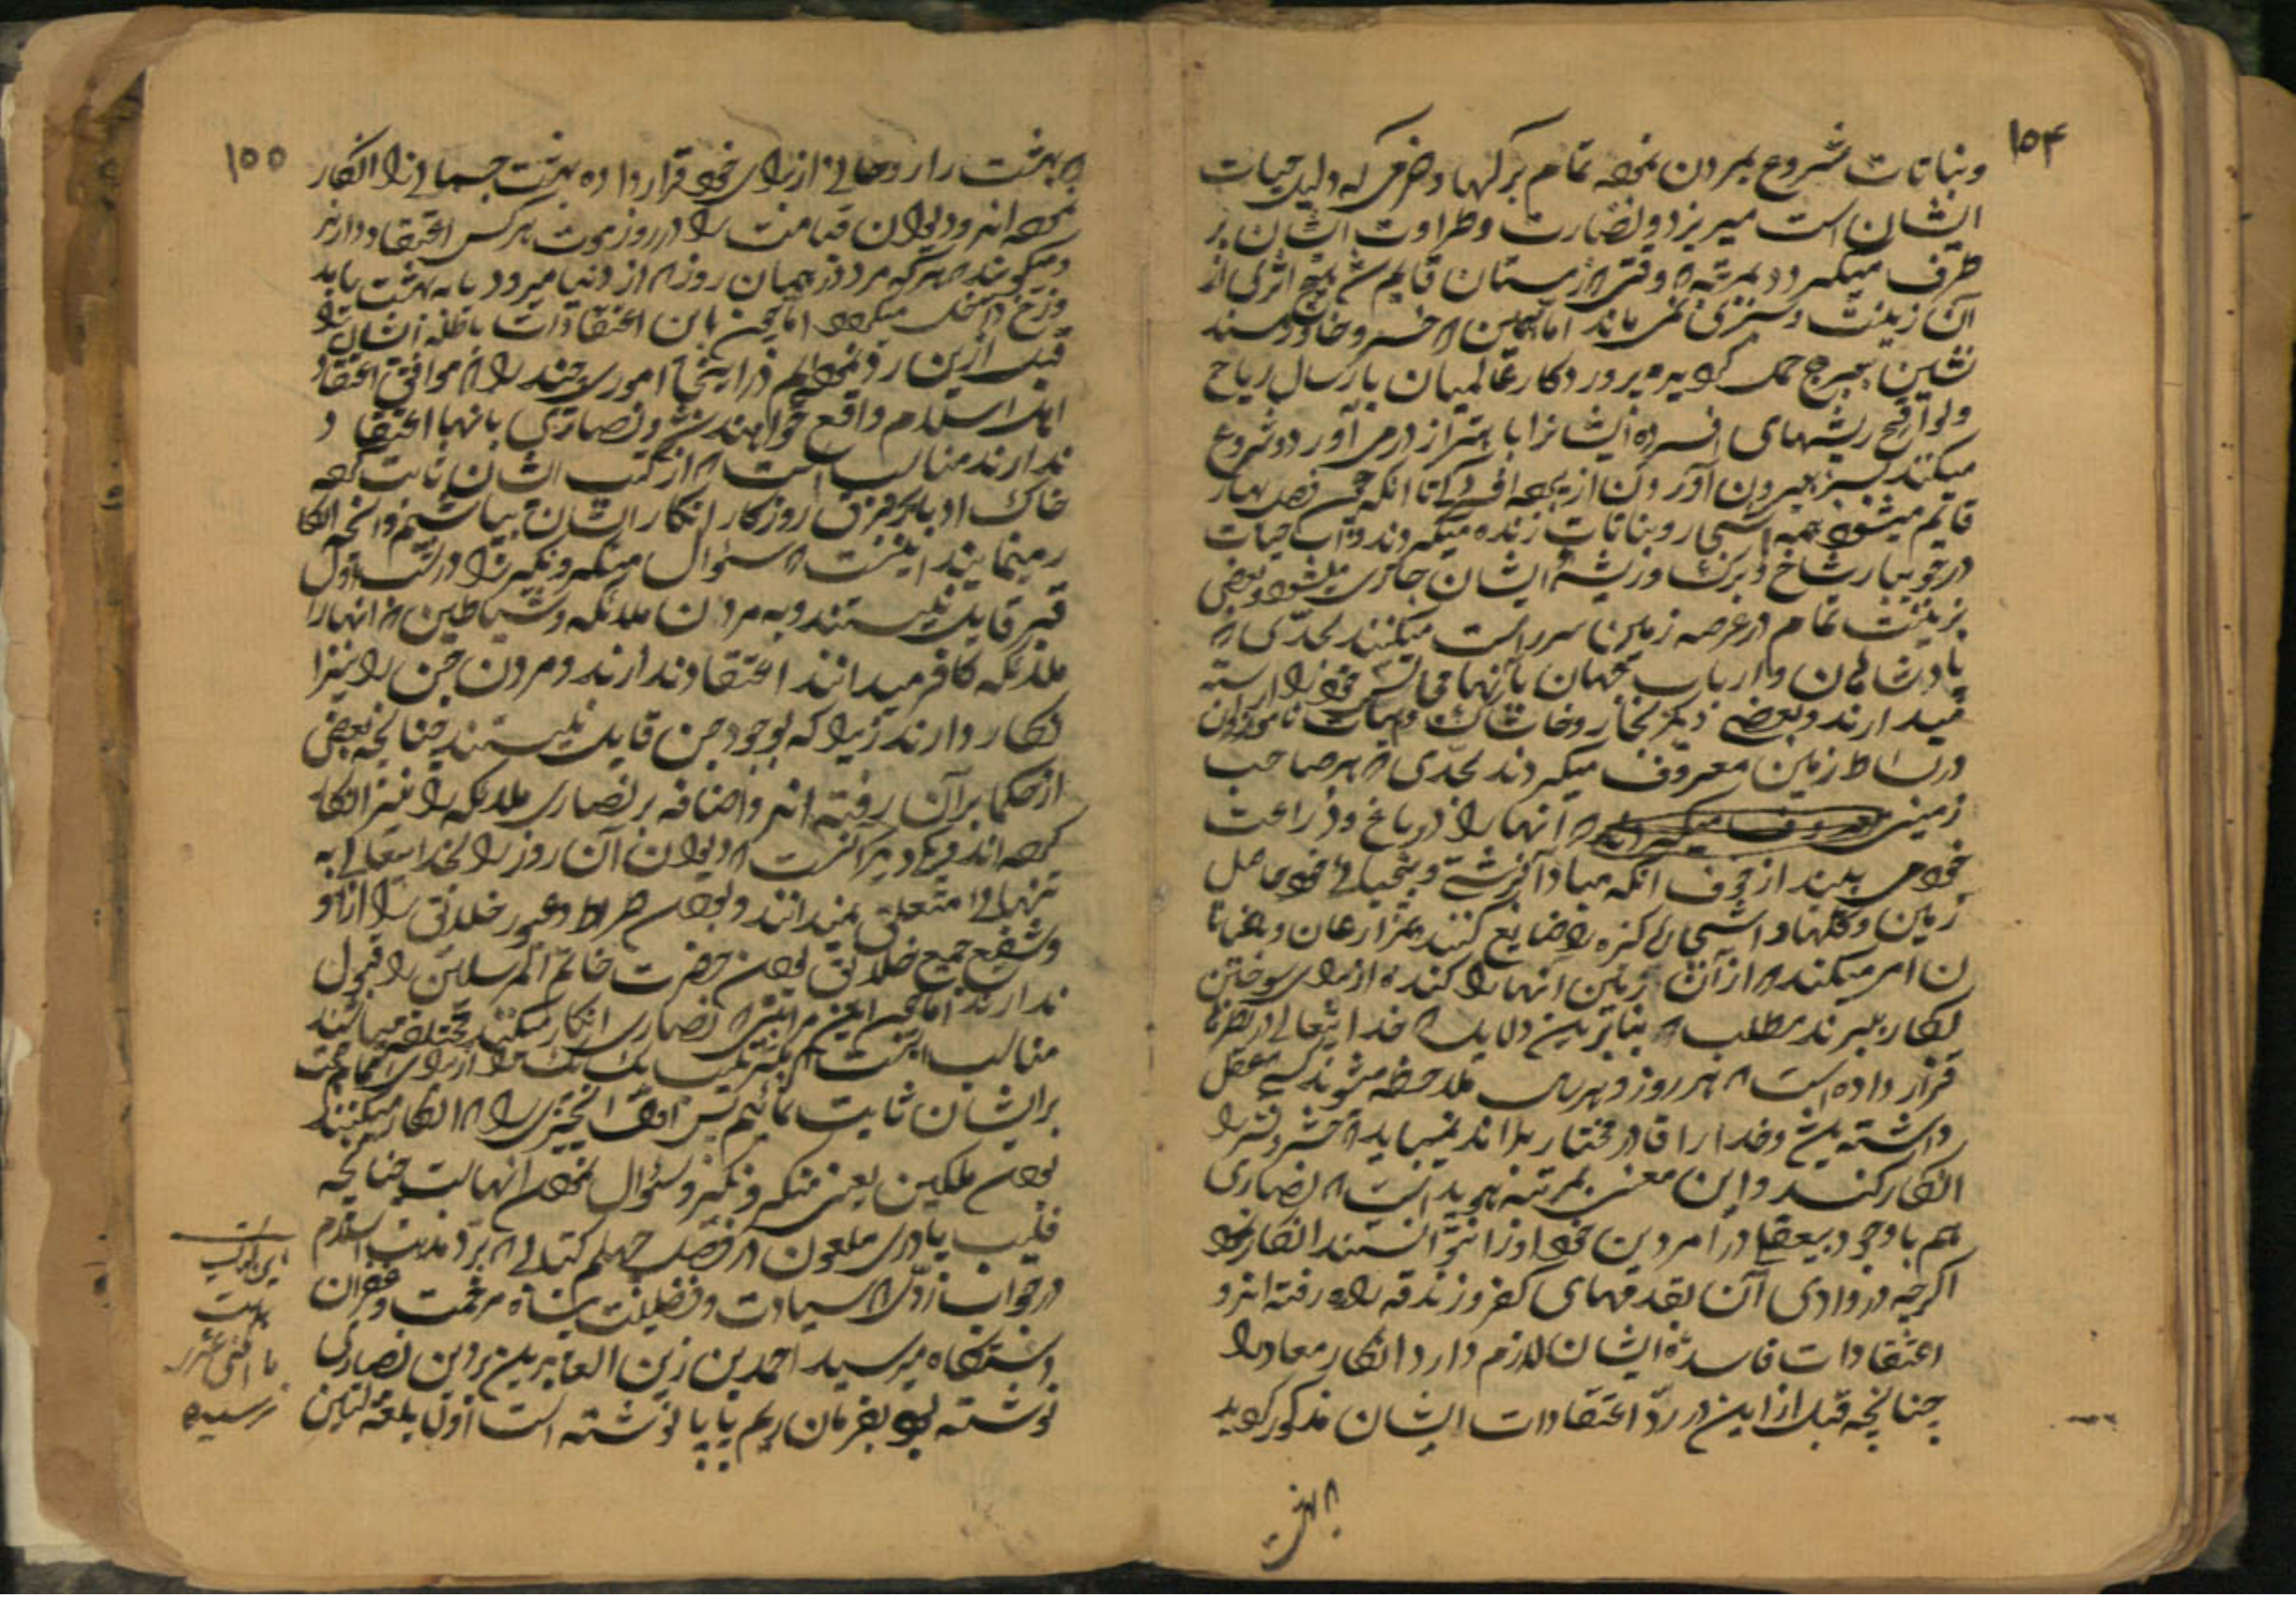 ۱۵۴
و نباتات شروع بمردن نموده تمام برکها و خرمی که دلیل حیات
ایشان است میریزد و نضارت و طراوت ایشان بر
طرف میکردد بمرتبه که وقتی که زمستان قایم شد هیچ اثری از
آن زینت و سبزی نمی ماند اما همین که خسرو خاور مسند
نشین ببرج حمل کردیده پروردکار عالمیان بارسال ریاح
ولواقح ریشهای افسرده ایشانرا باهتزاز در می آورد و شروع
میکنند بسر بیرون آوردن از تا انکه چون فصل بهار
قائم میشود همه اشجار و نباتات زنده میکردند و آب حیات
در جویبار شاخ و برک و ریشهٔ ایشان جاری میشود و بعضی
بزینت تمام در عرصه زمین سر راست میکنند بحدّی که
پادشاهان و ارباب جهان بآنها مجالس خود را آراسته
میدارند و بعضی دیکر بخار و خاشاک و هیات ناموزون
در بساط زمین معروف میکردند بحدّی که هر صاحب
زمینی که آنها را در باغ و زراعت
خود می بیند از خوف انکه مبادا حاصل
زمین و کلها و اشجار را ضایع کنند بمزارعان و باغبانا
ن امر میکند که از آن زمین آنها را کنده از برای سوختن
بکار ببرند مطلب که بنابرین دلایل که خدایتعالی در
قرار داده است که هر روز و هر سال ملاحظه میشوند کسی که عقل
داشته باشد و خدا را قادر مختار بداند نمیباید که حشر و نشر را
انکار کند و این معنی بمرتبه هویداست که نصاری
هم با وجود بیعقلی در امر دین خود اورا نتوانستند انکار نمود
اکرچه در وادی آن بقدمهای کفر و زندقه راه رفته اند و
اعتقادات فاسدهٔ ایشان لازم دارد انکار معاد را
چنانچه قبل از این در ردّ اعتقادات ایشان مذکور کردید
که بهشت
۱۵۵
که بهشت را روحانی از برای خود قرار داده بهشت جسمانی را انکار
نموده اند و دیوان قیامت را در روز موت هر کس اعتقاد دارند
و میکویند که هر که مرد در همان روز که از دنیا میرود یا به بهشت یا بد
وزخ داخل میکردد اما چون باین اعتقادات باطله ایشان را
قبل ازین رد نمودیم در اینجا اموری چند را که موافق اعتقاد
اهل اسلام واقع خواهند شد و نصاری بانها اعتقا د
ندارند مناسب است که از کتب ایشان ثابت کرده
خاک ادبار بر فرق روزکار انکار ایشان بپاشیم و آنچه انکا
ر مینمایند اینست که سئوال منکر و نکیر را در شب اول
قبر قایل نیستند و به مردن ملائکه و شیاطین که انها را
ملائکه کافر میدانند اعتقاد ندارند و مردن جن را نیز ا
نکار دارند زیرا که بوجود جن قایل نیستند چنانچه بعضی
از حکما بر آن رفته اند و اضافه بر نصاری ملائکه را نیز انکار
کرده اند و یکی دیکر آنست که دیوان آن روز را بخدایتعالی به
تنهائی متعلق نمیدانند و بودن صراط و عبور خلائق را از او
و شفیع جمیع خلائق بودن حضرت خاتم المرسلین را قبول
ندارند اما چون این مراتبی که نصاری انکار میکنند مختلف میباشند
مناسب اینست که بترتیب یک یک را از برای اتمام حجت
بر ایشان ثابت نمائیم پس اول آنچیزی را که انکار میکنند
بودن ملکین یعنی منکر و نکیر و سئوال نمودن انهاست چنانچه
فلیپ پادری ملعون در فصل چهلم کتابی که بردّ مذهب اسلام
در جواب ردّی که سیادت و فضیلت پناه مرحمت و غفران
دستکاه میر سید احمد بن زین العابدین بر دین نصاری
نوشته بود بفرمان ریم پاپا نوشته است اولا بلغة لتین
این جواب
ما اقفی عشر
نرسیده